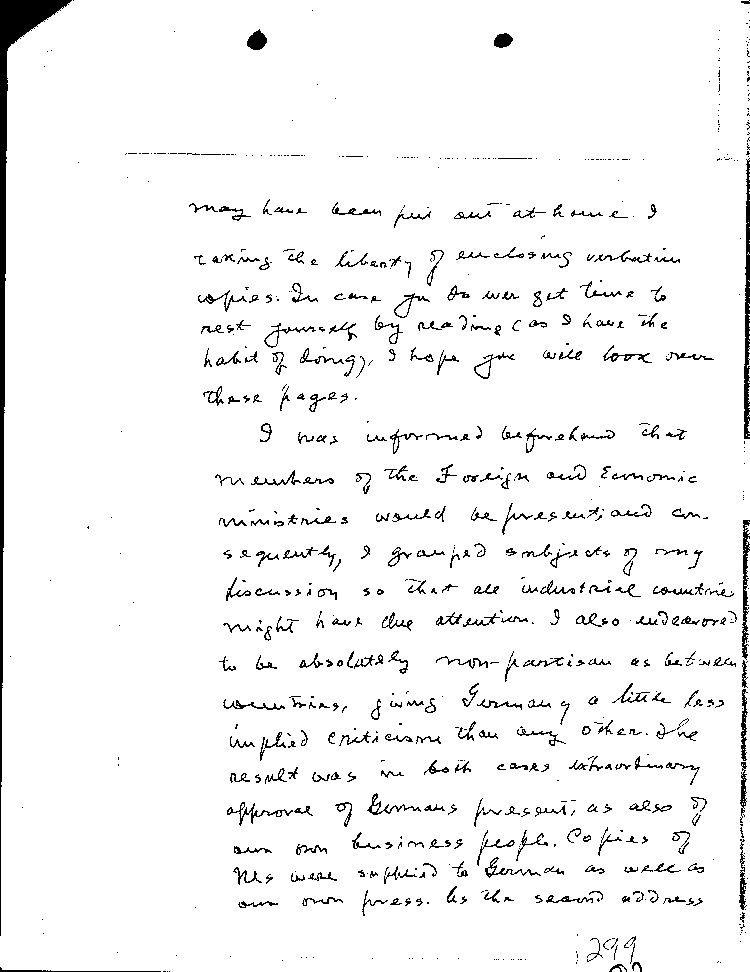 may have been put out at home. I
taking the liberty of enclosing verbatim
copies. In case you do ever get time to
rest yourself by reading (as I have the
habit of doing), I hope you will look over
these pages.
I was informed beforehand that
members of the Foreign and Economic
ministries would be present; and con-
sequently, I grouped subjects of my
discussion so that all industrial countrie
might have due attention. I also endeavored
to be absolutely non-partisan as between
countries, giving Germany a little less
implied criticism than any other. The
result was in both cases extraordinary
approval of Germans present, as also of
our own business people. Copies of
Mss were supplied to German as well as
our own press. As the second address
299